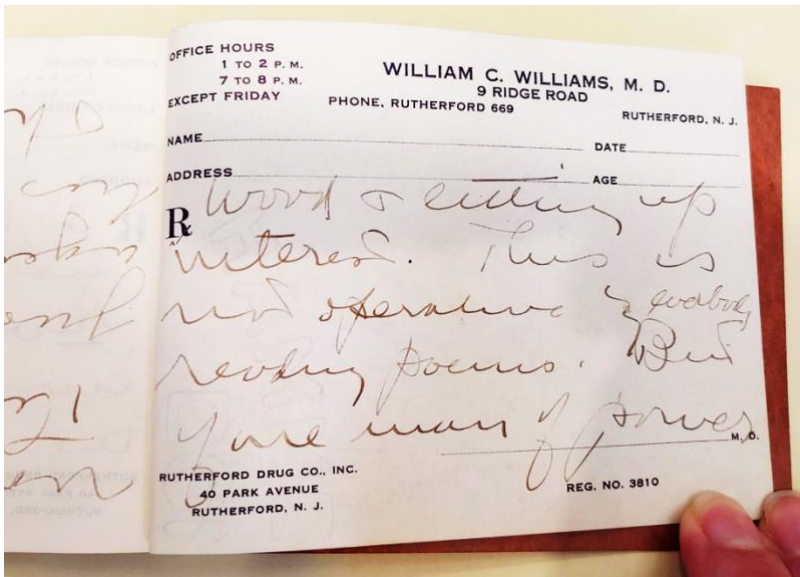 OFFICE HOURS
1 TO 2 P. M.
7 TO 8 P. M.
EXCEPT FRIDAY
WILLIAM C. WILLIAMS, M. D.
9 RIDGE ROAD
PHONE, RUTHERFORD 669
RUTHERFORD, N. J.
NAME
DATE
ADDRESS
AGE
℞ word & up
interest. This is
not operative everybody
reading poems. But
if one man of power
M. D.
RUTHERFORD DRUG CO., INC.
40 PARK AVENUE
RUTHERFORD, N. J.
REG. NO. 3810